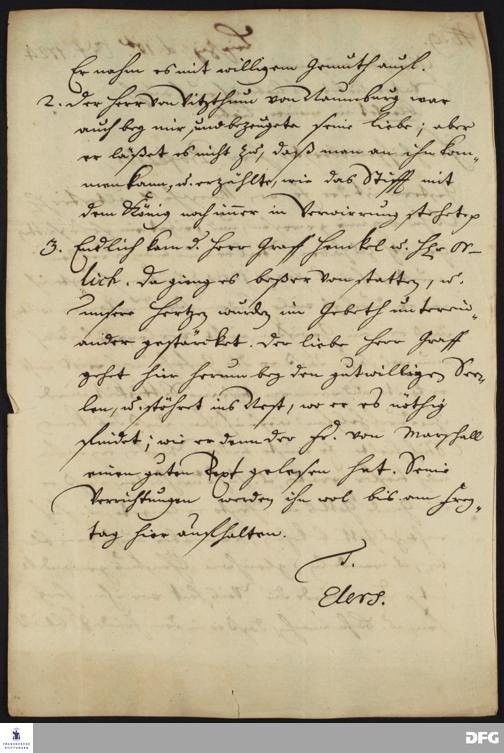 Er nahm es mit willigem Gemüth auf.
2. Der Herr von Vitzthum von Naumburg war
auch bey mir, und bezeugete seine liebe; aber
er läßet es nicht zu, daß man an ihn kom-
men kann, u. erzählte, wie das Stifft mit
dem König noch immer in Verwirrung stehet p
3. Endlich kam d. Herr Graff Henkel u. Hr. Or-
lich. Da gieng es beßer von statten, u.
unsere Hertzen wurden im Gebeth unterein-
ander gestärcket. Der liebe Herr Graff
gehet hier herum bey den gutwilligen See-
len, u. stöhret ins Nest, wo er es nöthig
findet; wie er denn der Fr. von Marschall
einen guten Text gelesen hat. Seine
Verrichtungen werden ihn wol bis am Frey-
tag hier aufhalten.
T.
Elers.
FRANCKESCHE
STIFTUNGEN
DFG